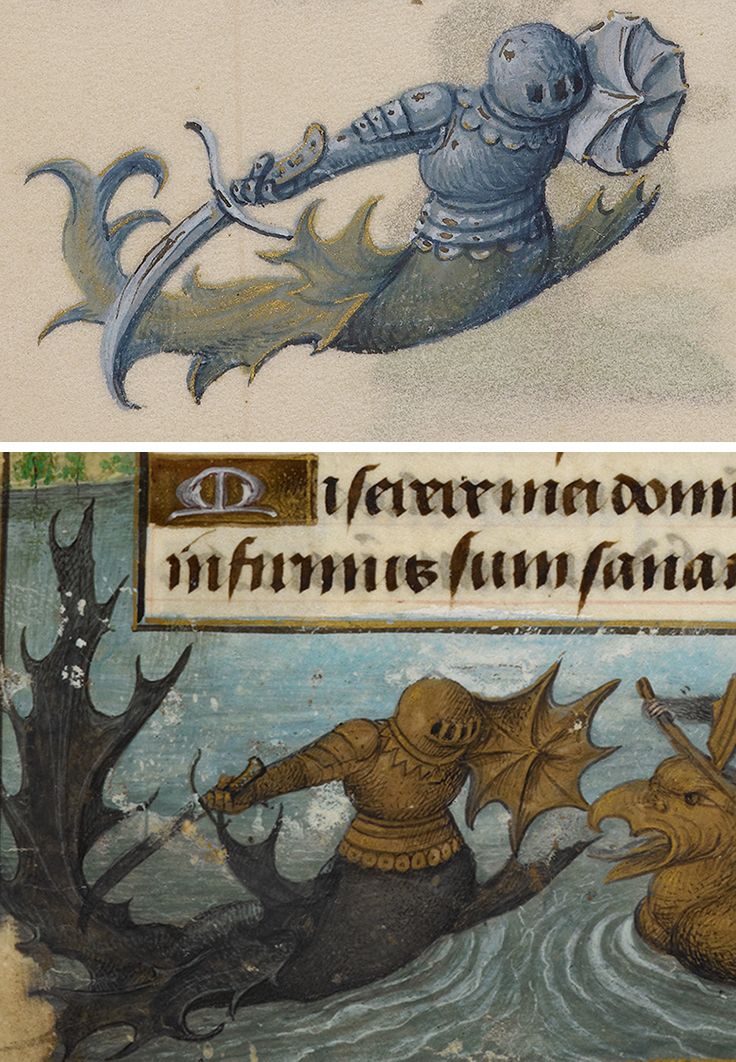 Miserere mei domi
infirmus sum sana